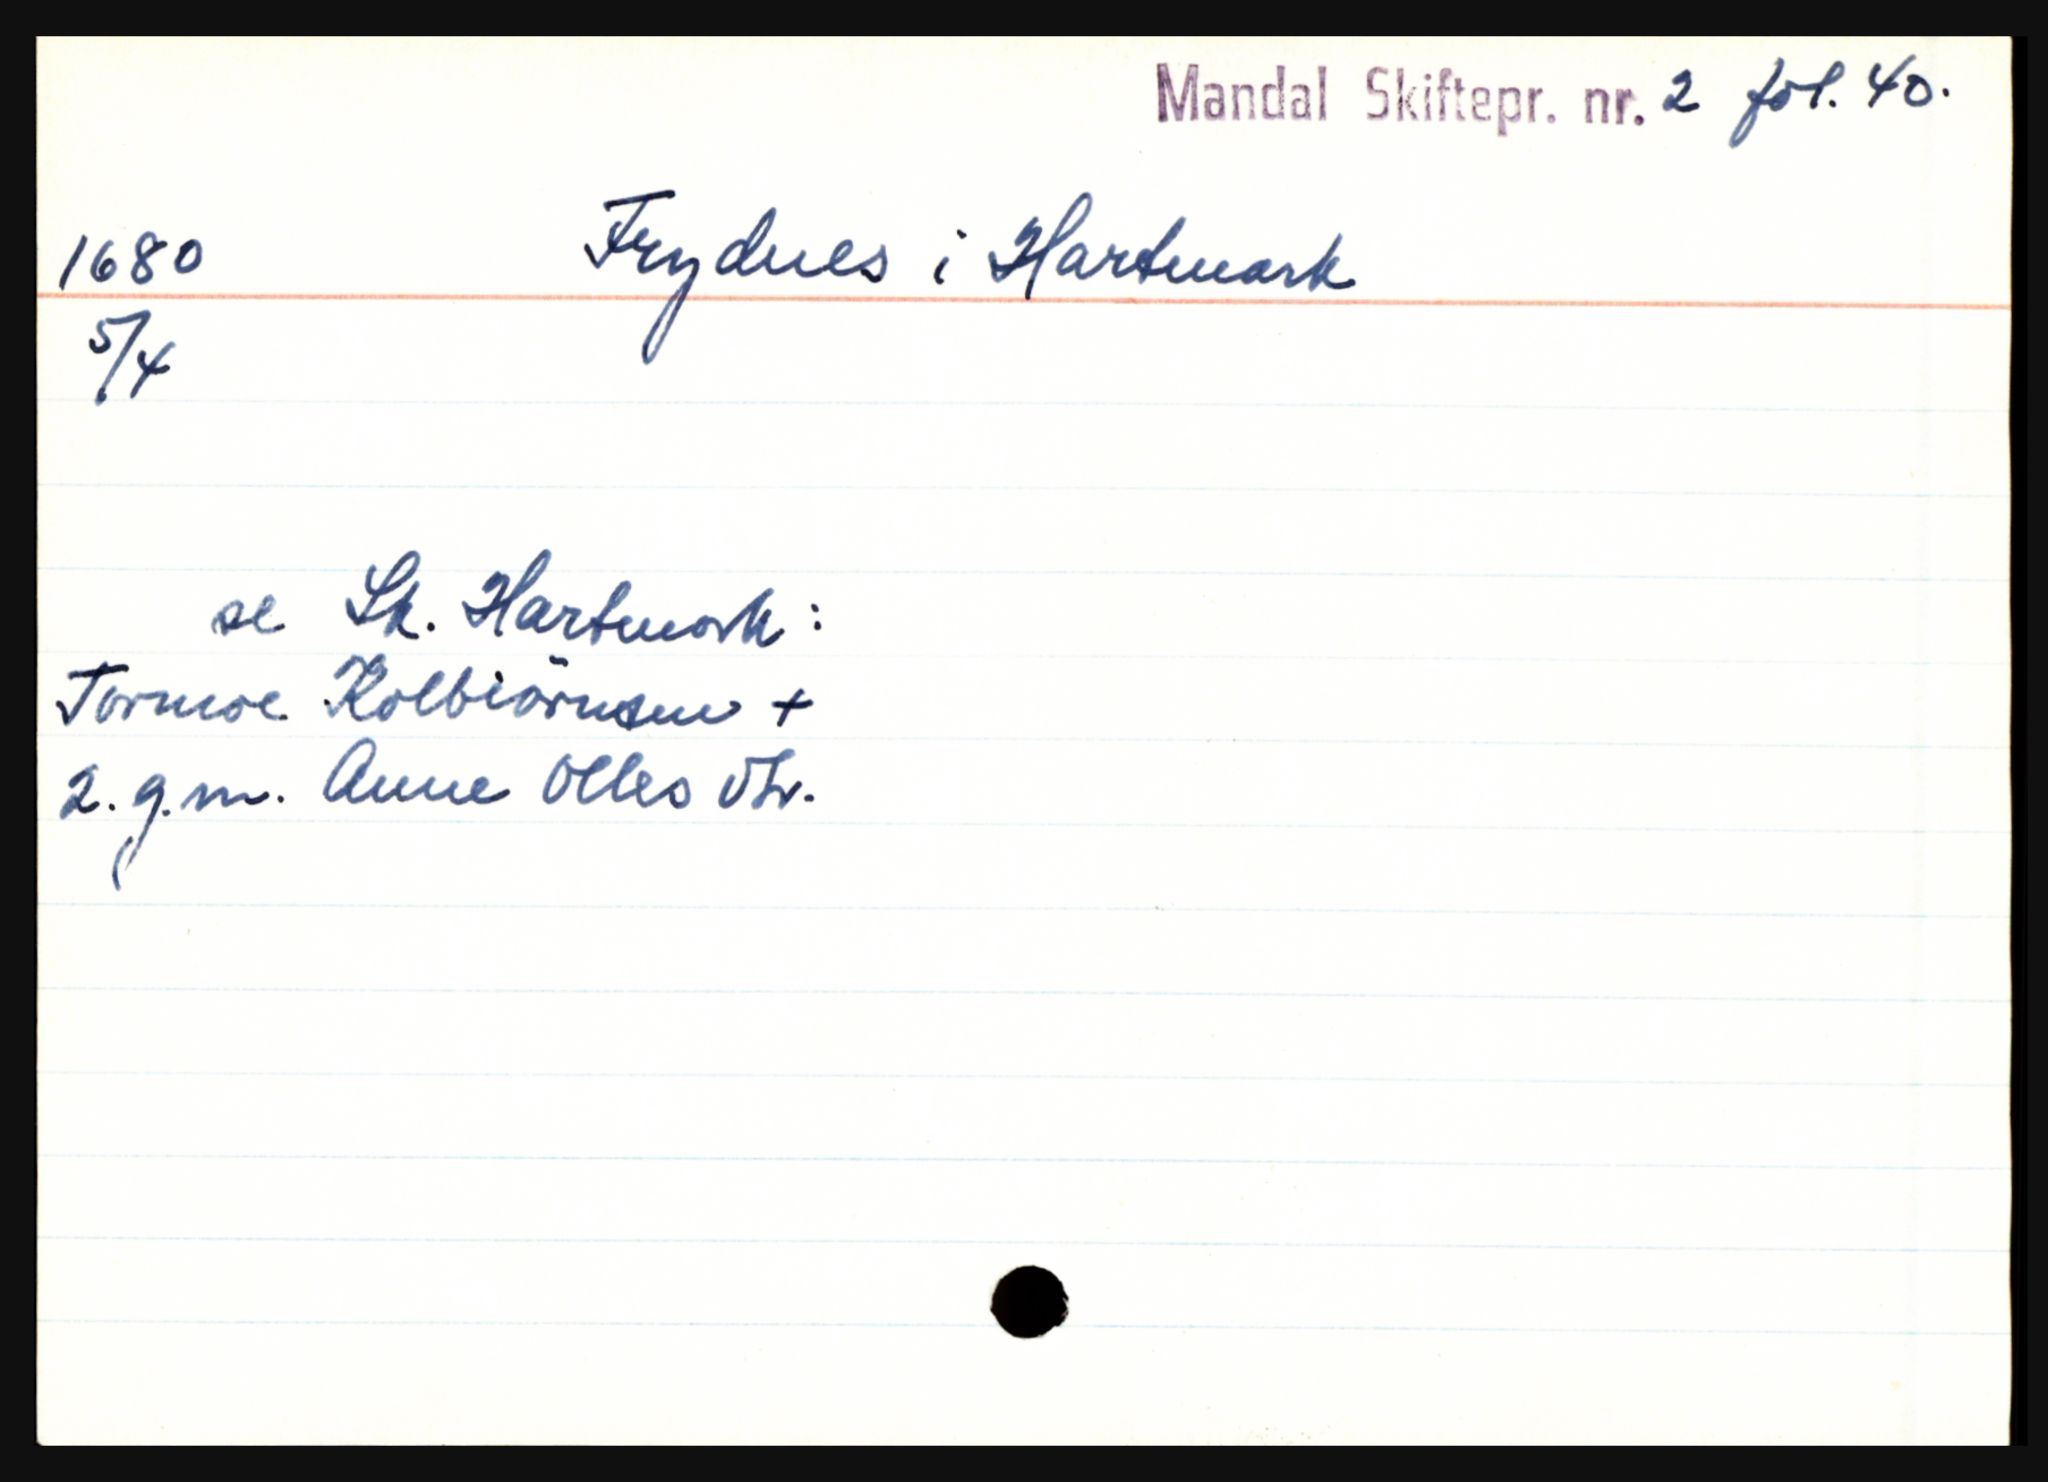 Mandal Skiftepr. nr. 2 fol. 40.
1680 Frydnes i Hartmark
5/4
se Sk. Hartmark:
Tormoe Kolbiörnsen +
2. g.m. Anne Olles dtr.